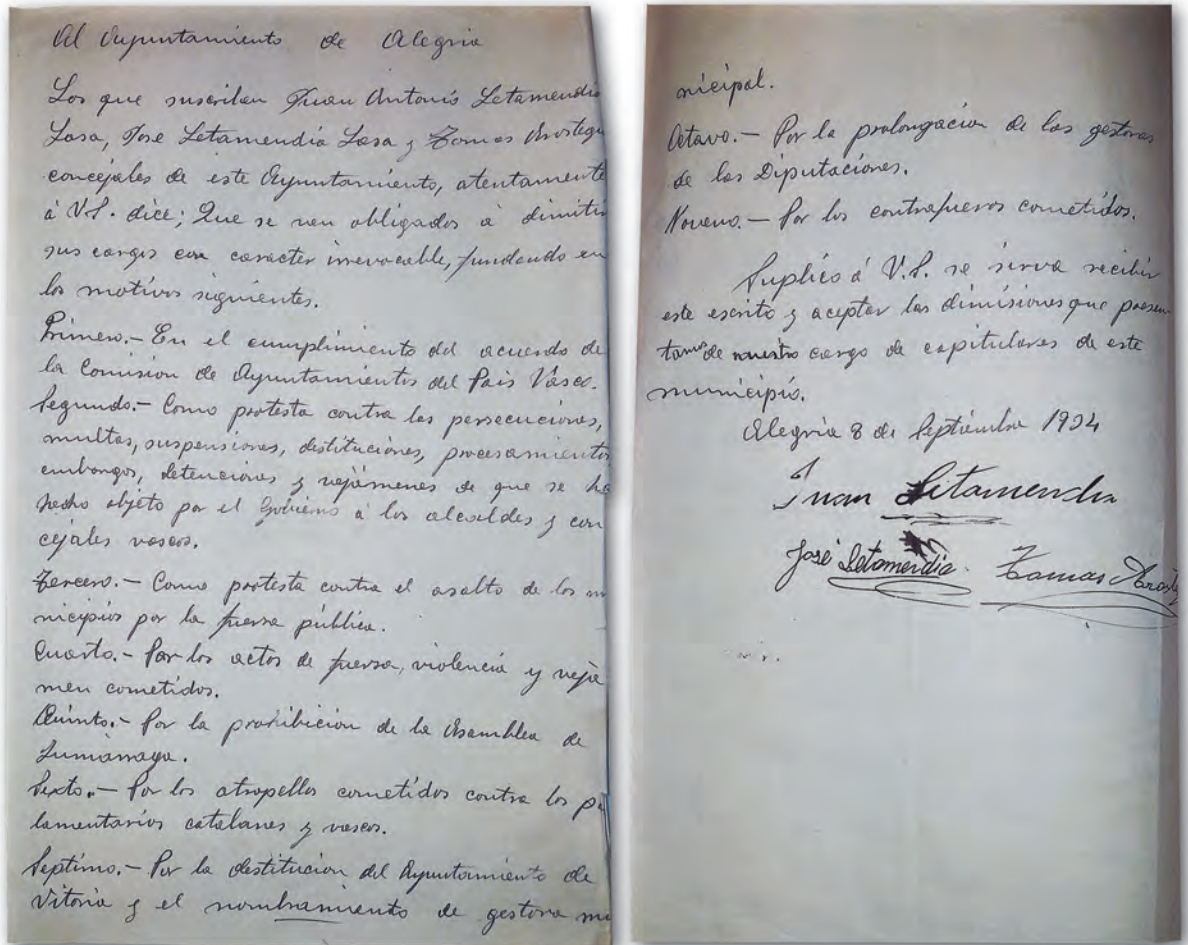 Al Ayuntamiento de Alegria
Los que suscriben Juan Antonio Letamendia
Lasa, Jose Letamendía Lasa y Tomas Arostegu
concejales de este Ayuntamiento, atentamente
á V.S. dice; Que se ven obligados á dimitir
sus cargos con caracter irrevocable, fundando en
los motivos siguientes.
Primero.- En el cumplimiento del acuerdo de
la Comision de Ayuntamientos del Pais Vasco.
Segundo.- Como protesta contra las persecuciones,
multas, suspensiones, destituciónes, procesamientos
embargos, detenciones y vejámenes de que se ha
hecho objeto por el Gobierno á los alcaldes y con
cejales vascos.
Tercero.- Como protesta contra el asalto de los mu
nicipios por la fuerza pública.
Cuarto.- Por los actos de fuerza, violencia y vejá
men cometidos.
Quinto.- Por la prohibicion de la Asamblea de
Zumárraga.
Sexto.- Por los atropellos cometidos contra los pa
lamentarios catalanes y vascos.
Septimo.- Por la destitucion del Ayuntamiento de
Vitoria y el nombramiento de gestora mu
nicipal.
Octavo.- Por la prolongacion de las gestoras
de las Diputaciones.
Noveno.- Por los contrafueros cometidos.
Suplico á V.S. se sirva recibir
este escrito y aceptar las dimisiones que presen
tamos de nuestro cargo de capitulares de este
municipio.
Alegria 8 de Septiembre 1934
Juan Letamendia
José Letamendia. Tomas Aroste